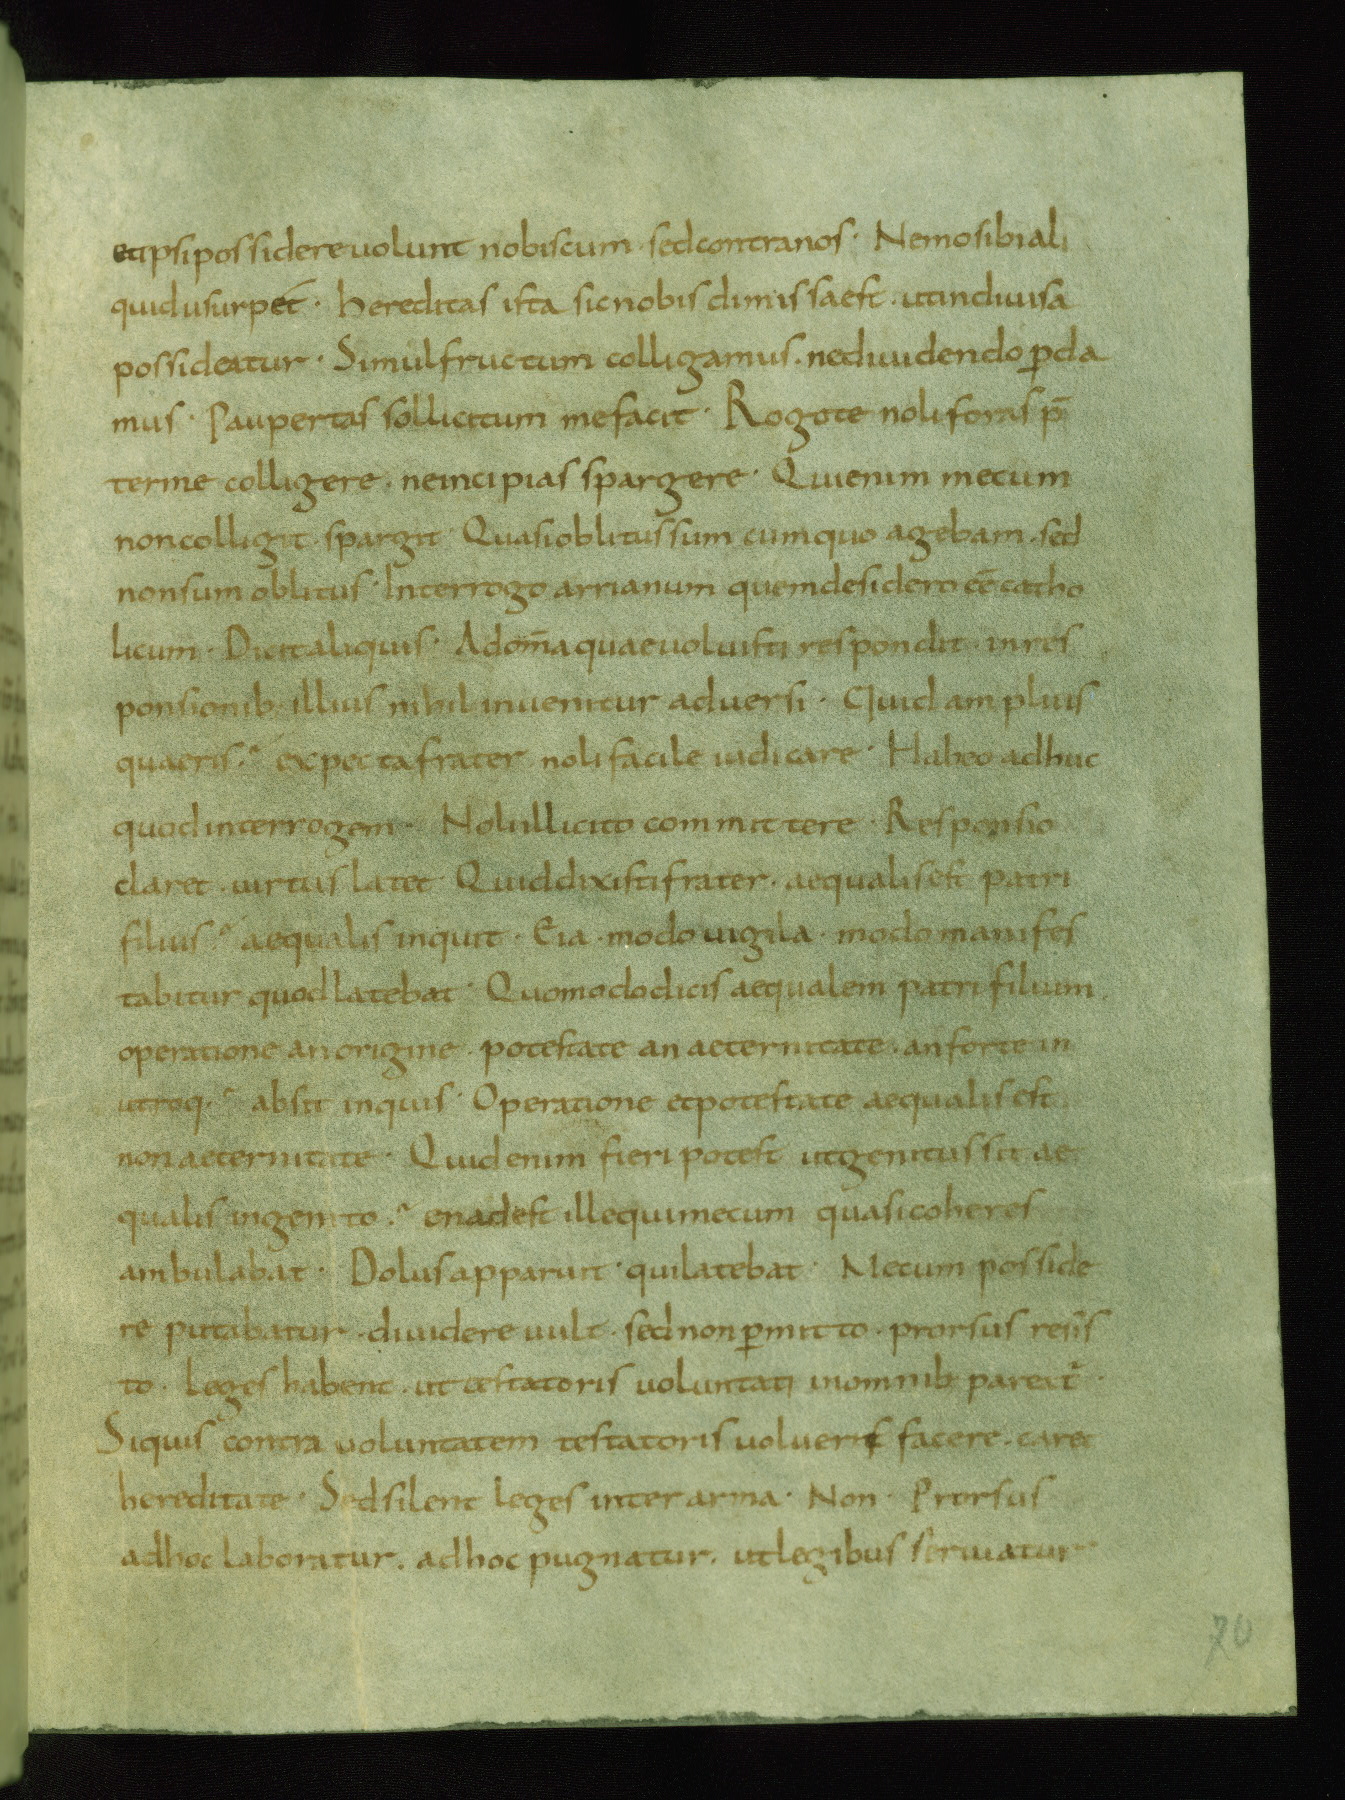 et ipsi possidere volunt nobiscum · sed contra nos · Nemo sibi ali
quid usurpet · hereditas ista sic nobis dimissa est · ut indiuisa
possideatur · Simul fructum colligamus · ne diuidendo p̱da
mus · Paupertas sollicitum me facit · Rogo te noli foras p̄
ter me colligere · ne incipias spargere · Qui enim mecum
non colligit · spargit · Quasi oblitus sum cum quo agebam · sed
non sum oblitus · Interrogo arrianum quem desidero eē catho
licum · Dicit aliquis · Ad om̄a quae uoluisti respondit · in res
ponsionib· illius nihil inuenitur aduersi · Quid amplius
quaeris? expecta frater noli facile iudicare · Habeo adhuc
quod interrogem · Nolu illicito committere · Responsio
claret · uirtus latet Quid dixisti frater · aequalis est patri
filius? aequalis inquit · Eia · modo uigila · modo manifes
tabitur quod latebat · Quomodo dicis aequalem patri filium
operatione an origine · potestate an aeternitate · an forte in
utroq·? absit inquis · Operatione et potestate aequalis est
non aeternitate · Quid enim fieri potest ut genitus sit ae
qualis ingenito? en adest ille qui mecum quasi coheres
ambulabat · Dolus apparuit · qui latebat · Mecum posside
re putabatur · diuidere uult · sed non p̱mitto · prorsus resis
to · leges habent · ut testatoris uoluntati in omnib· pareat᷑ ·
Si quis contra uoluntatem testatoris uoluerit facere · caret
hereditate · Sed silent leges inter arma · Non · Prorsus
ad hoc laboratur · ad hoc pugnatur · ut legibus seruiatur